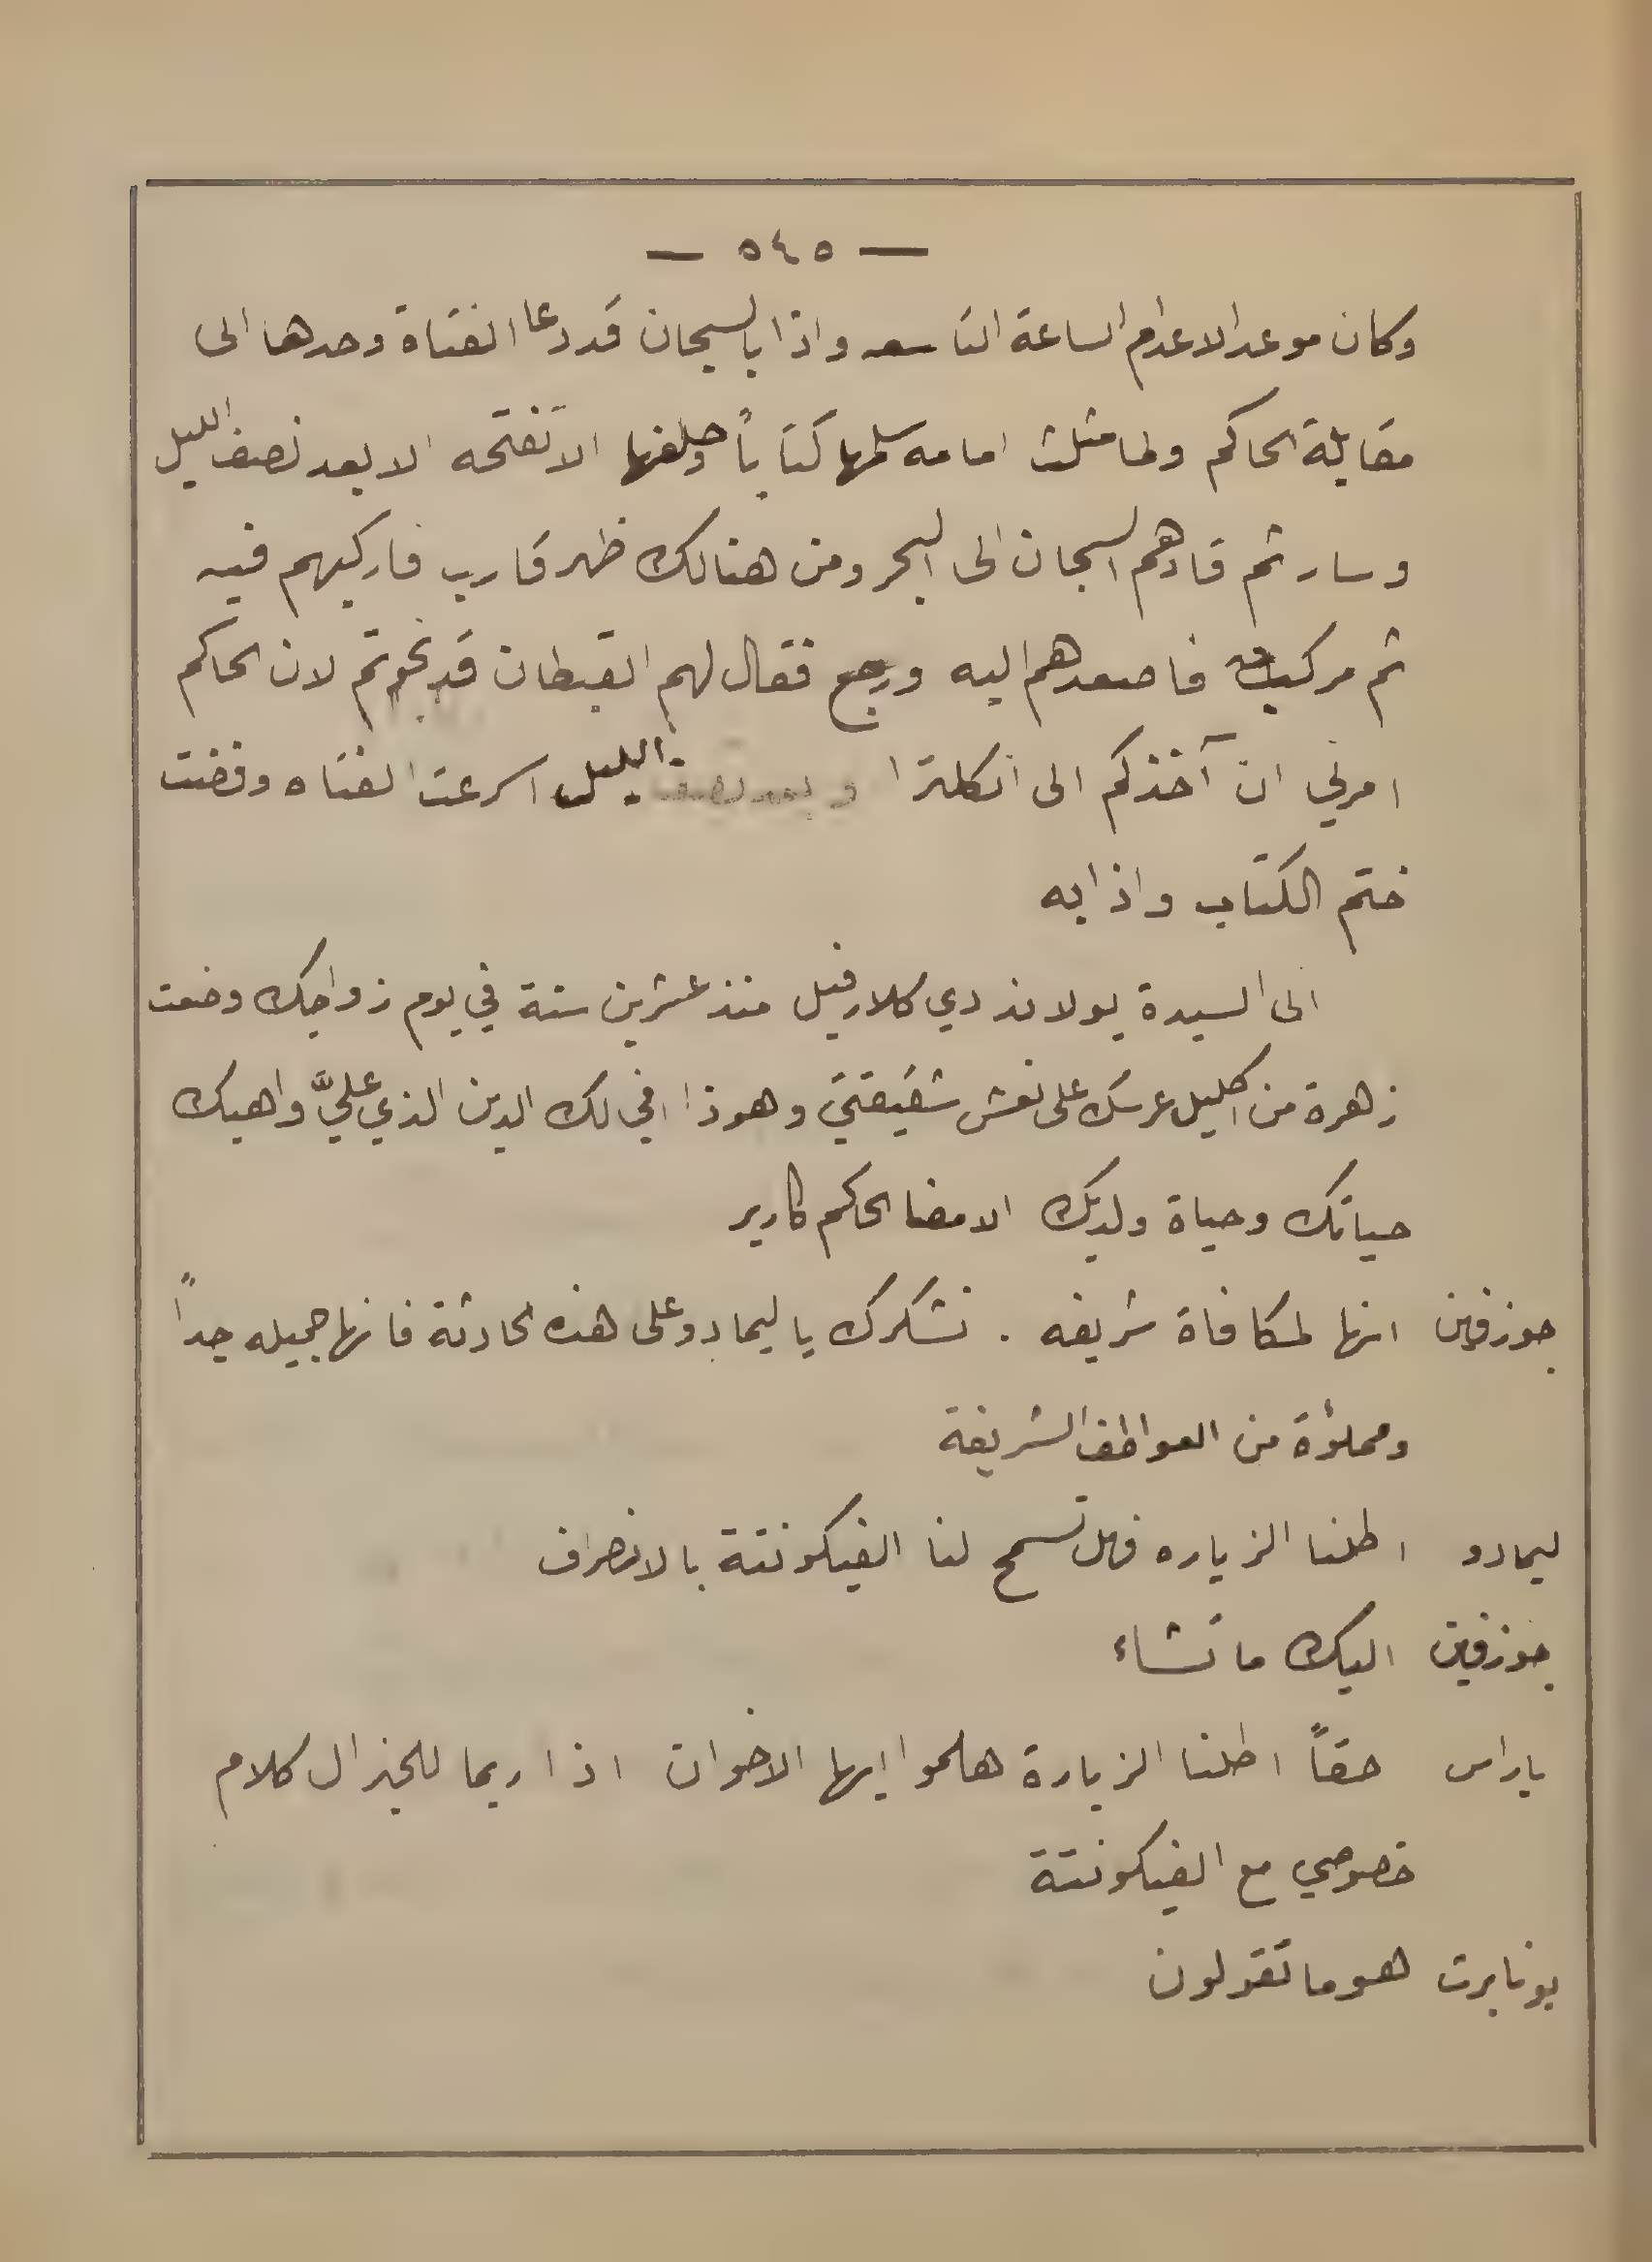 — ٥٤٥ —
وكان موعد الاعدام الساعة التاسعه واذا بالسجان قد دعا الفتاة وحدها الى
مقابلة الحاكم ولما مثلت امامه سلمها كتاباً وحلفها الا تفتحه الا بعد نصف الليل
وسار ثم قادهم السجان الى البحر ومن هنالك ظهر قارب فاركبهم فيه
ثم مركب فاصعدهم اليه ورجع فقال لهم القبطان قد نجوتم لان الحاكم
امرني ان آخذكم الى انكلترا وبعد نصف الليل اسرعت الفتاه وفضت
ختم الكتاب واذا به
الى السيدة يولاند دي كلارفيل منذ عشرين سنة في يوم زواجك وضعت
زهرة من اكليل عرسك على نعش شقيقتي وهوذا افي لك الدين الذي عليَّ واهبك
حياتك وحياة ولديك الامضا الحاكم كارير
جوزفين انها لمكافاة شريفه . نشكرك يا ليمادو على هذه الحادثة فانها جميله جداً
ومملؤة من العواطف الشريفة
ليمادو اطلنا الزياره فهل تسمح لنا الفيكونتة بالانصراف
جوزفين اليك ما تشاء
باراس حقاً اطلنا الزيارة هلموا ايها الاخوان اذا ربما للجنرال كلام
خصوصي مع الفيكونتة
بونابرت هو ما تقولون